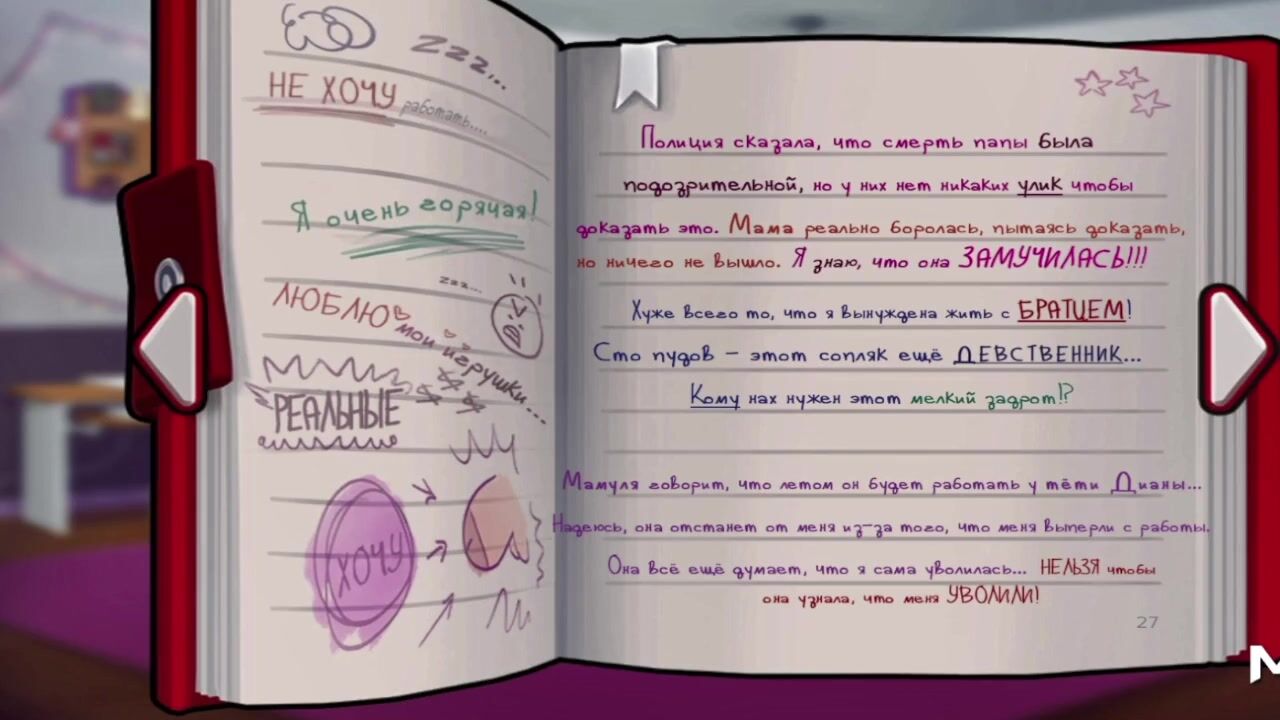 zzz...
НЕ ХОЧУ работать....
Я очень горячая!
zzz...
ЛЮБЛЮ мои игрушки...
РЕАЛЬНЫЕ
ХОЧУ
Полиция сказала, что смерть папы была
подозрительной, но у них нет никаких улик чтобы
доказать это. Мама реально боролась, пытаясь доказать,
но ничего не вышло. Я знаю, что она ЗАМУЧИЛАСЬ!!!
Хуже всего то, что я вынуждена жить с БРАТЦЕМ!
Сто пудов – этот сопляк ещё ДЕВСТВЕННИК...
Кому нах нужен этот мелкий задрот!?
Мамуля говорит, что летом он будет работать у тёти Дианы...
Надеюсь, она отстанет от меня из-за того, что меня выперли с работы.
Она всё ещё думает, что я сама уволилась... НЕЛЬЗЯ чтобы
она узнала, что меня УВОЛИЛИ!
27